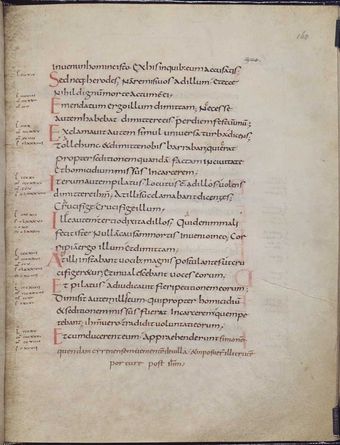 160
inveni in homine isto Ex his in quib; eum accusatis;
Sed neq; herodes; Nam remisi vos ad illum; et ecce
Nihil dignum morte actum e ei;
Emendatum ergo illum dimittam; Necesse
autem habebat dimittere eis per diem festū unū;
Exclamavit autem simul universa turba dicens;
Tolle hunc & dimitte nobis barraban qui erat
propter seditionem quandā factam in civitate
Et homicidium missus In carcerem;
Iterum autem pilatus locutus e ad illos volens
dimittere ihm; At illi succlamabant dicentes;
Crucifige Crucifige illum;
Ille autem tertio dixit ad illos; Quid enim mali
fecit iste; Nullā causam mortis invenio in eo; Cor
ripiā ergo illum et dimittam;
At illi instabant vocib; magnis postulantes ut cru
cifigeretur; Et invalescebant voces eorum;
Et pilatus adiudicavit fieri petitionem eorum;
Dimisit autem illis eum qui propter homicidiū
& seditionem missus fuerat In carcerem quem pe
tebant; ihm vero tradidit voluntati eorum;
Et cum ducerent eum; Apprehenderunt simonē
quendam cyrenensem venientē de villa & imposuer illi crucē
portare post ihm;